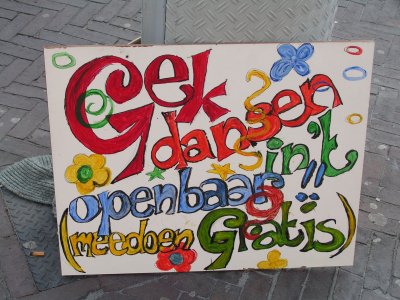 Gek
dansen
in't
openbaar!!
(meedoen Gratis)